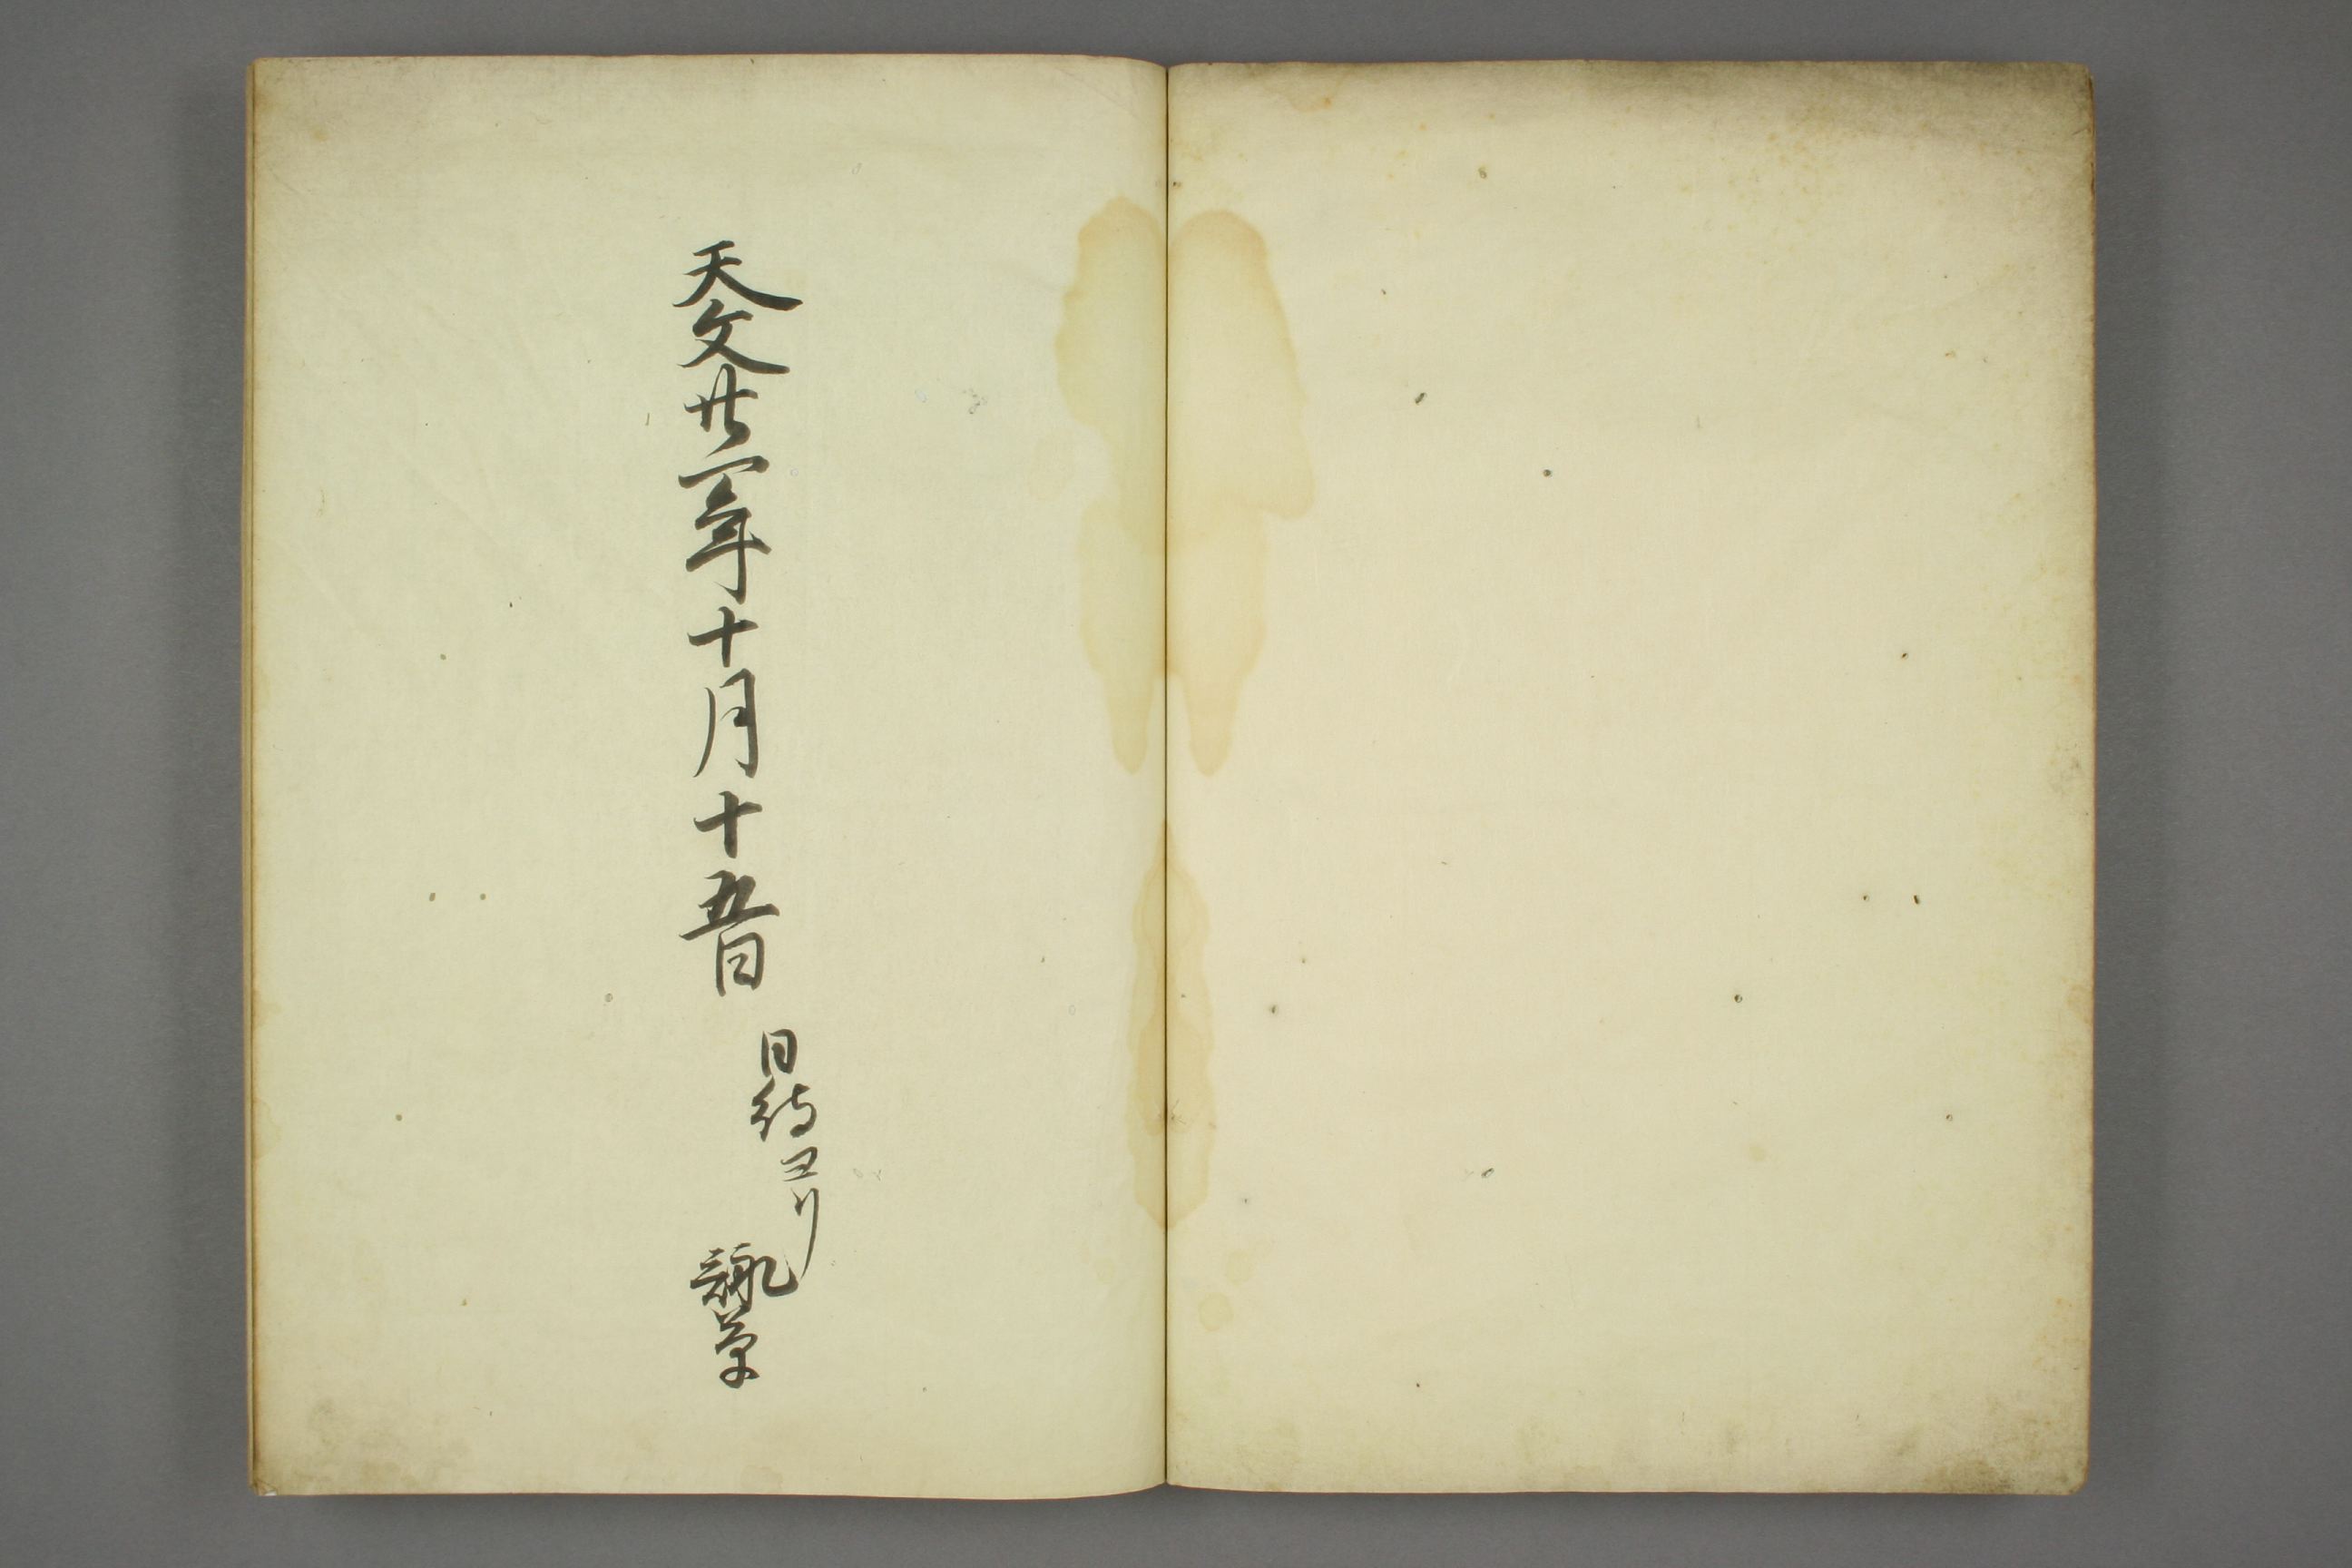 天文廿一年十月十五日
日待ヨリ
詠草